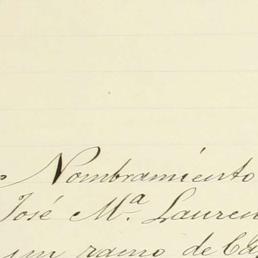 Nombramiento
José Mª. Lauren
un ramo de Ca